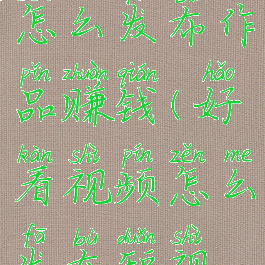 怎么发布作
pǐn zhuàn qián hǎo
品赚钱(好
kàn shì pín zěn me
看视频怎么
fā bù duǎn shì
发布短视